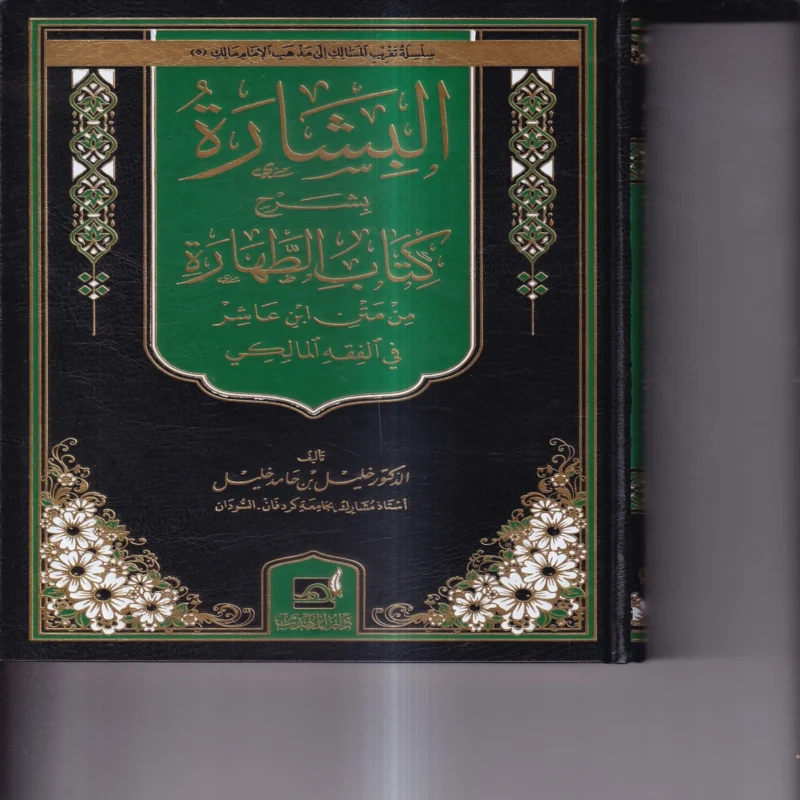 سِلْسِلَةُ تَقْرِيبِ المَسَالِكِ إِلَى مَذْهَبِ الإِمَامِ مَالِكٍ (٥)
البِشَارَةُ
بِشَرْحِ
كِتَابِ الطَّهَارَةِ
مِنْ مَتْنِ ابْنِ عَاشِرْ
فِي الفِقْهِ المَالِكِي
تأليف
الدكتور خليل بن حامد خليل
أستاذ مشارك بجامعة كردفان - السودان